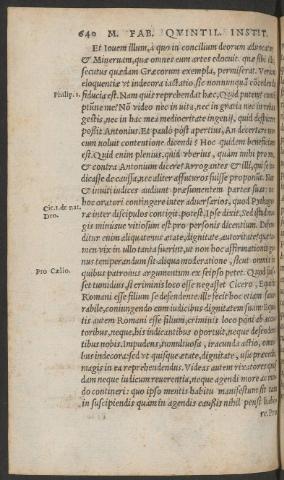 640 M. FAB. QVINTIL. INSTIT.
Et Iouem illum, à quo in concilium deorum aduocatur
& Mineruam, quæ omnes eum artes edocuit. quæ sibi ille
secutus quædam Græcorum exempla, permiserat. Verùm
eloquentiæ vt indecora iactatio, sic nonnunquā cōcedenda
Philip. 2.
fiducia est. Nam quis reprehendat hæc, Quid putem? contē
ptúme me? Nō video nec in vita, nec in gratia nec in rebus
gestis, nec in hac mea mediocritate ingenij, quid despicere
possit Antonius. Et paulò pòst apertius, An decertare me-
cum voluit contentione dicendi? Hoc quidem beneficium
est. Quid enim plenius, quid vberius, quàm mihi pro me,
& contra Antonium dicere? Arrogantes & illi, qui se iu-
dicasse de caussa, nec aliter affuturos fuisse proponunt. Nam
& inuiti iudices audiunt præsumentem partes suas: nec
hoc oratori contingere inter aduersarios, quod Pythago-
Cic. 1. de nat.
Deo.
ræ inter discipulos contigit, potest, Ipse dixit. Sed istud ma-
gis minúsue vitiosum est pro personis dicentium. Defen-
ditur enim aliquatenus ætate, dignitate, autoritate: quæ ta-
men vix in ullo tanta fuerint, ut non hoc affirmationis ge-
nus temperandum sit aliqua moderatione, sicut omnia in
quibus patronus argumentum ex seipso petet. Quid fuis-
Pro Cælio.
set tumidius, si criminis loco esse negasset Cicero, Equitis
Romani esse filium se defendente: ille fecit hoc etiam fauo-
rabile, coniungendo cum iudicibus dignitatem suam: Equi-
tis autem Romani esse filium, criminis loco poni ab accusa-
toribus, neque his iudicantibus oportuit, neque defenden-
tibus nobis. Impudens, tumultuosa, iracunda actio, omni-
bus indecora: sed vt quisque ætate, dignitate, vsu præcedit,
magis in ea reprehendendus. Videas autem rixatores quos-
dam neque iudicum reuerentia, neque agendi more ac mo-
do contineri: quo ipso mentis habitu manifestum sit tam
in suscipiendis quàm in agendis caussis nihil pensi habe-
re. Pro-